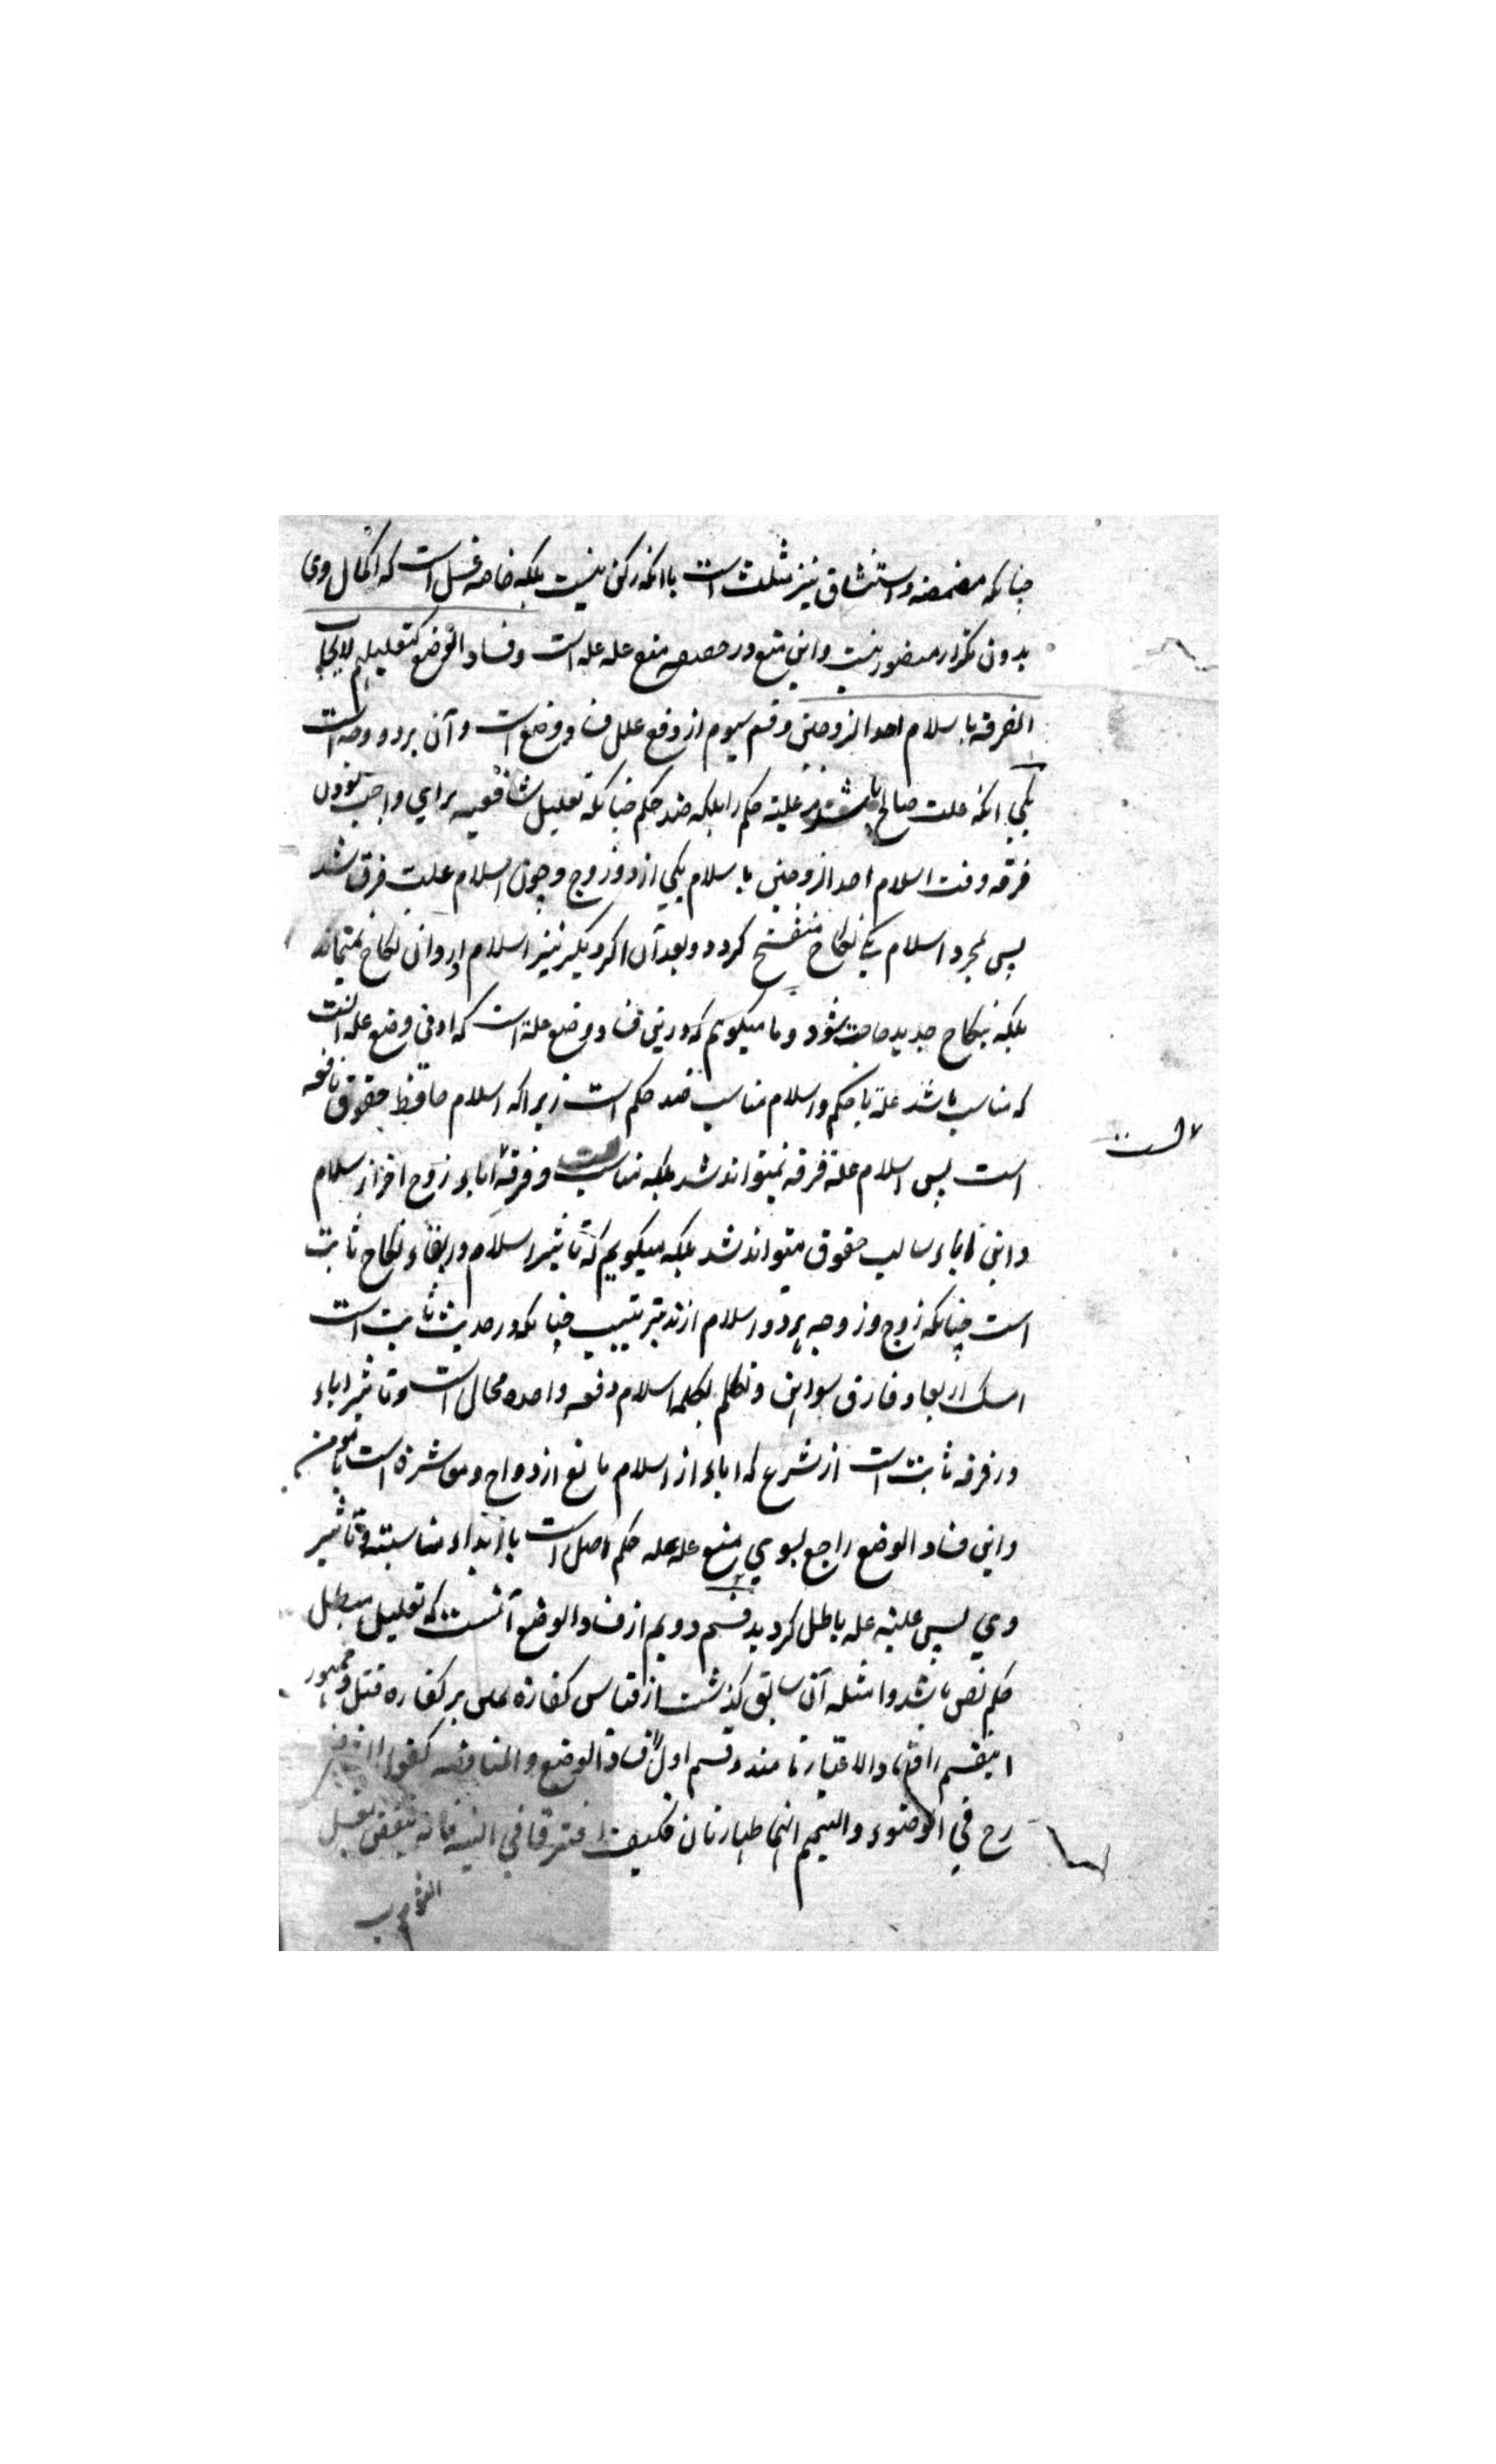 چنانکه مضمضه و استنشاق نیز مثلث است با آنکه رکن نیست بلکه خاصه غسل است که اکمال وی
بدون تکرار متصور نیست و این منع در حقیقت منع عله عله است وفساد الوضع کتعلیلهم لایجاب
الفرقة باسلام احد الزوجین و قسم سیوم از دفع علل فساد وضع است و آن بر دو وجه است
یکی انکه علت صالح نباشد علیة حکم را بلکه ضد حکم چنانکه تعلیل شافعیه برای واجب نمودن
فرقه وقت اسلام احد الزوجین باسلام یکی از دو زوج و چون اسلام علت فرقت شد
پس بمجرد اسلام یکی نکاح منفسخ کردد و بعد آن اکر دیکر نیز اسلام آرد آن نکاح نمیماند
بلکه نکاح جدید حاجت شود و ما میکویم که درین فساد وضع علة است که ادنی وضع عله آنست
که مناسب باشد علة باحکم و اسلام مناسب ضد حکم است زیرا که اسلام حافظ حقوق نافعه
است پس اسلام علة فرقه نمیتواند شد بلکه مناسب وفرقة اباء زوج اخر از اسلام
و این اباء سالب حقوق میتواند شد بلکه میکویم که تاثیر اسلام در بقاء نکاح ثابت
است چنانکه زوج و زوجه هر دو اسلام ارند بترتیب چنانکه در حدیث ثابت است
امسک اربعا و فارق سواهن و تکلم بکلمه اسلام دفعه واحده محال است و تاثیر اباء
در فرقه ثابت است از شرع که اباء از اسلام مانع ازدواج و معاشرة است با مومن
و این فساد الوضع راجع بسوی منع عله عله حکم اصل است با ابداء مناسبته و تاثیر
وی پس علیة عله باطل کردید قسم دویم از فساد الوضع آنست که تعلیل مبطل
حکم نص باشد و امثله آن سابق کذشت از قیاس کفاره یمین بر کفاره قتل و جمهور
اینقسم را فساد الاعتبار نامند و قسم اول را فساد الوضع والمناقضه کقول الشافعی
رح في الوضوء والتیمم انهما طهارتان فکیف افترقا في النیه فانه ینتقض بغسل
الثوب